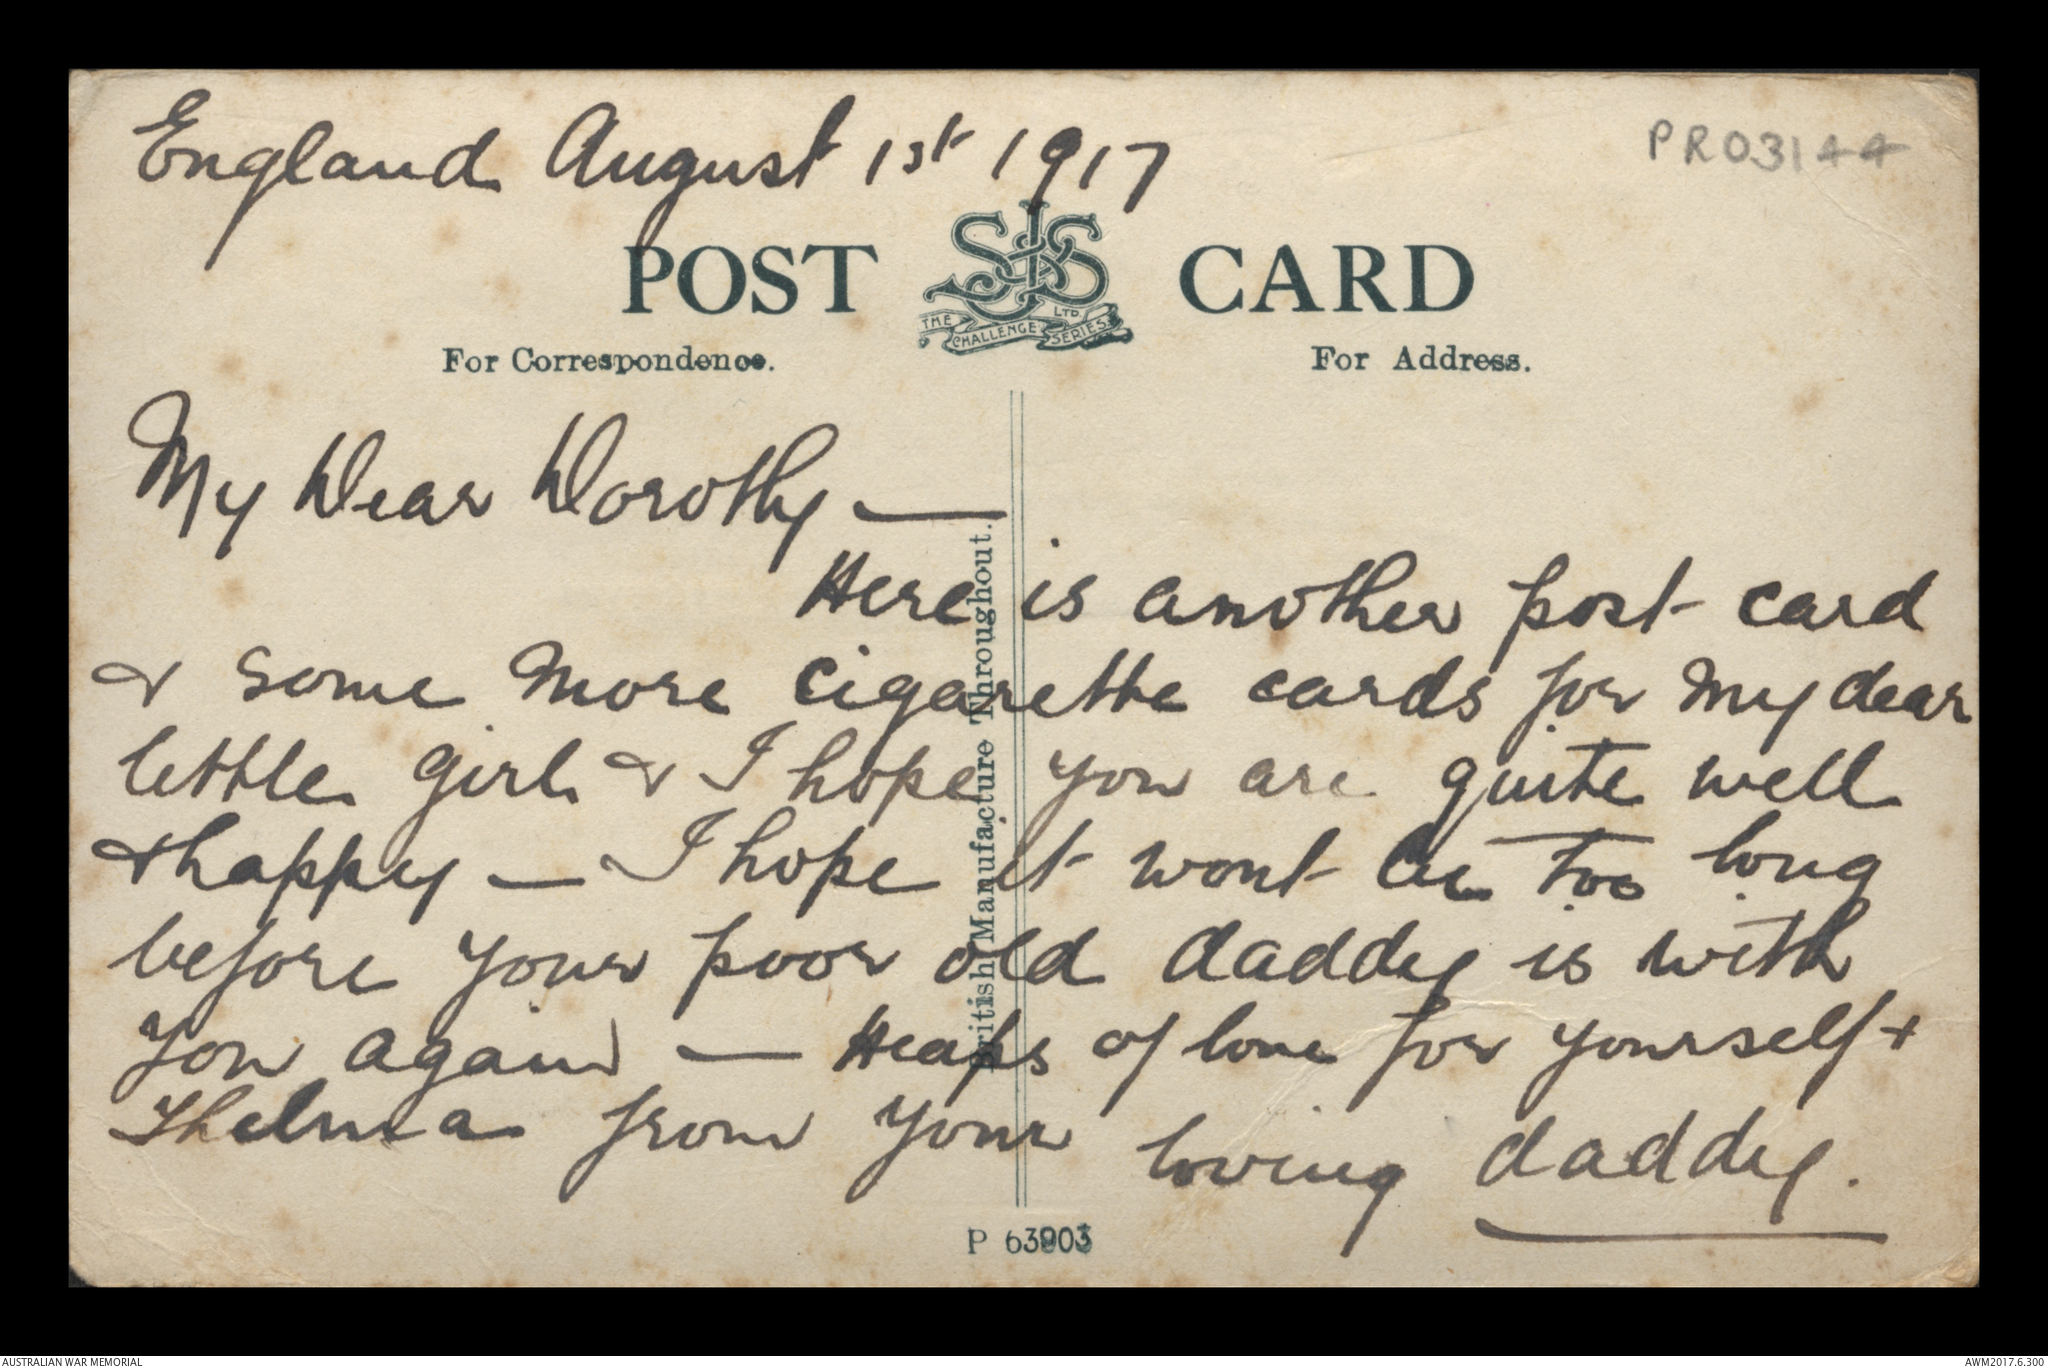 England August 1st 1917
PRO3144
POST CARD
SJS
THE CHALLENGE LTD. SERIES
For Correspondence.
For Address.
My Dear Dorothy —
Here is another post card
& some more cigarette cards for my dear
little girl & I hope you are quite well
& happy — I hope it wont be too long
before your poor old daddy is with
you again — Heaps of love for yourself +
Thelma from your loving daddy.
British Manufacture Throughout.
P 63903
AUSTRALIAN WAR MEMORIAL
AWM2017.6.300